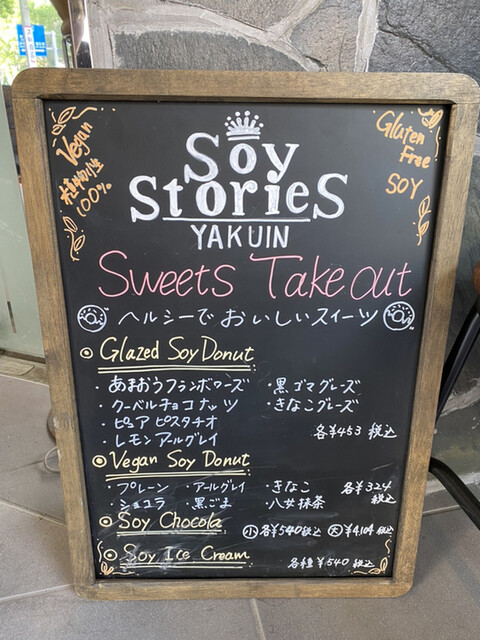 Vegan
植物性
100%
Gluten
Free
SOY
Soy
StorieS
YAKUIN
Sweets Take out
ヘルシーで おいしいスイーツ
Glazed Soy Donut
・あまおうフランボワーズ ・黒ゴマグレーズ
・クーベルチョコナッツ ・きなこグレーズ
・ピュアピスタチオ
・レモンアールグレイ 各¥453 税込
Vegan Soy Donut
・プレーン ・アールグレイ ・きなこ 各¥324
・ショコラ ・黒ごま ・八女抹茶 税込
Soy Chocola 小 各¥540税込 大 ¥4,104税込
Soy Ice Cream 各種¥540 税込